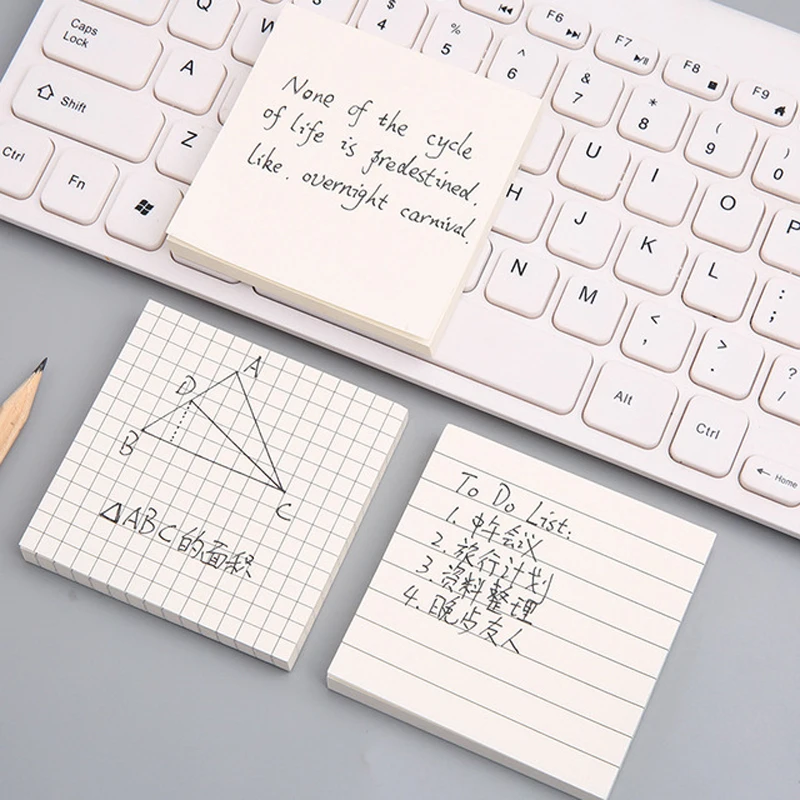 Q
W
$
4
%
5
^
6
F6
F7
F8
F9
&
7
*
8
(
9
)
0
Caps
Lock
A
U
I
O
P
Shift
Z
H
J
K
L
:
;
Ctrl
Fn
N
M
<
,
>
.
?
/
Alt
Ctrl
Home
None of the cycle
of life is predestined.
like. overnight carnival.
A
D
B
C
△ABC的面积
To Do List:
1. 中午会议
2. 旅行计划
3. 资料整理
4. 晚占友人